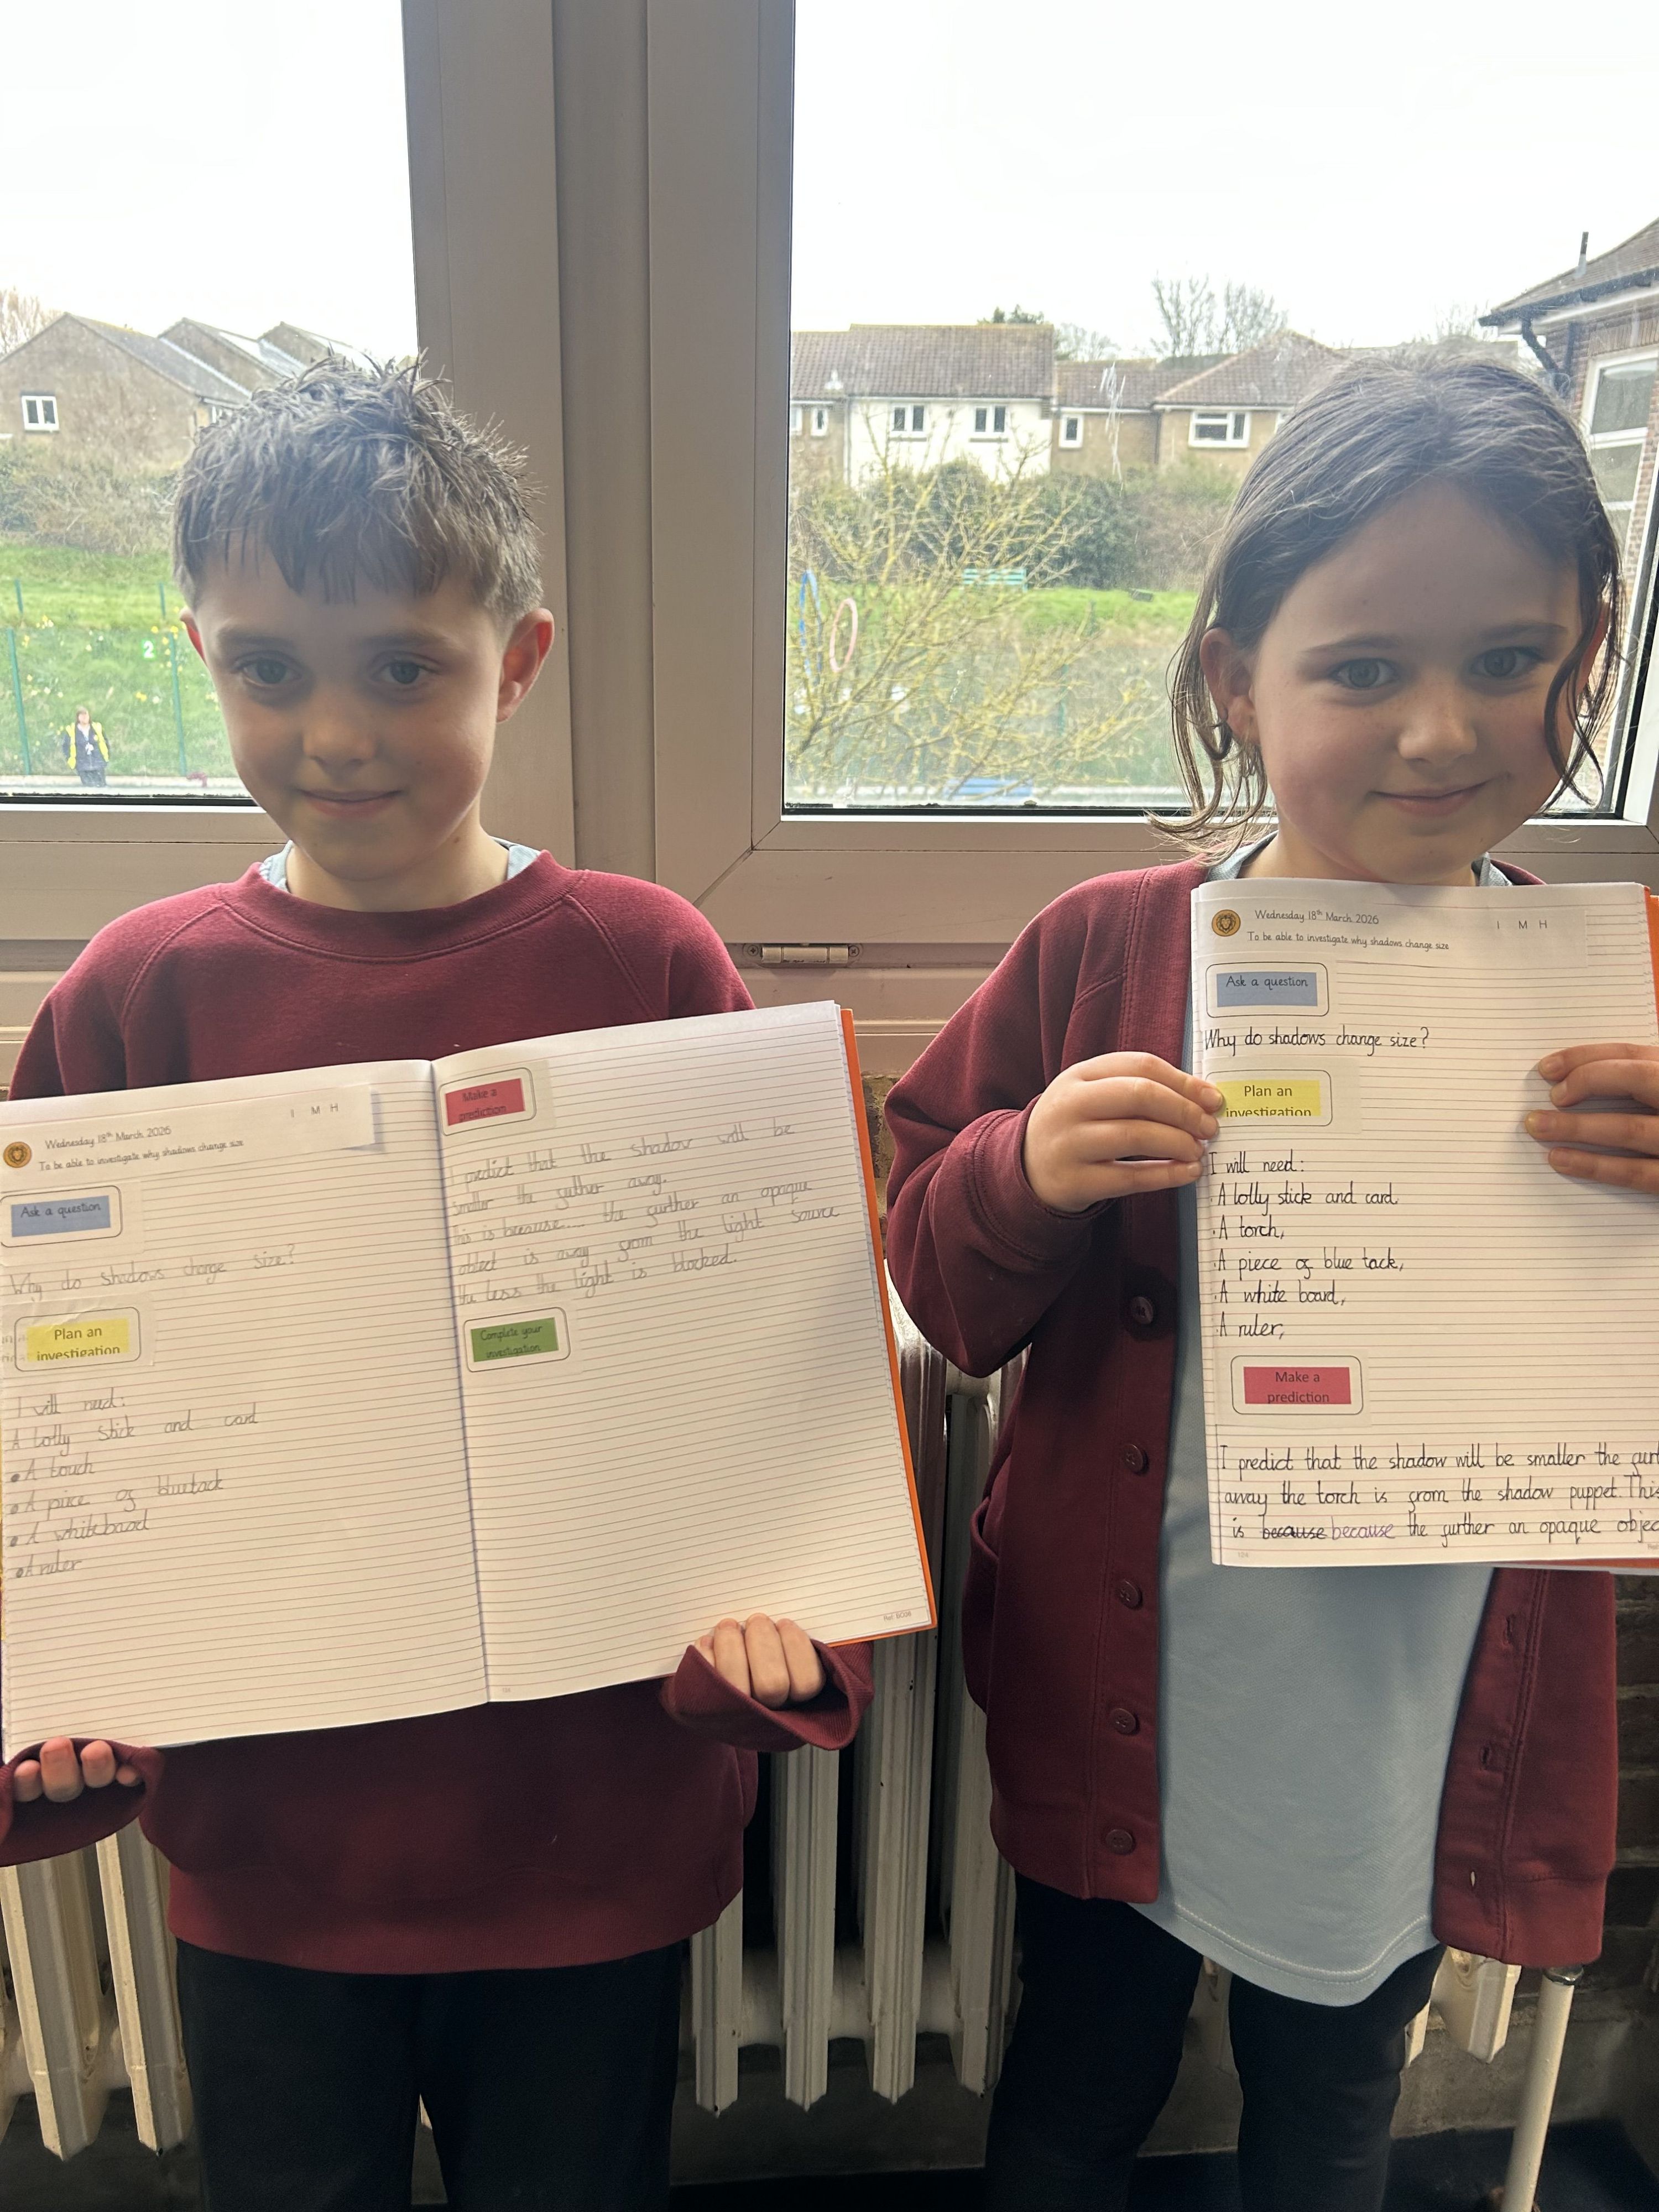 Wednesday 18th March 2026
I M H
To be able to investigate why shadows change size
Ask a question
Why do shadows change size?
Plan an
investigation
I will need:
A lolly stick and card
• A touch
• A piece of bluetack
• A whiteboard
• A ruler
Make a
prediction
I predict that the shadow will be
smaller the further away.
This is because.... the further an opaque
object is away from the light source
the less the light is blocked.
Complete your
investigation
Ref: BD08
Wednesday 18th March 2026
I M H
To be able to investigate why shadows change size
Ask a question
Why do shadows change size?
Plan an
investigation
I will need:
· A lolly stick and card
· A torch,
· A piece of blue tack,
· A white board,
· A ruler,
Make a
prediction
I predict that the shadow will be smaller the furt
away the torch is from the shadow puppet. This
is because because the further an opaque objec
2